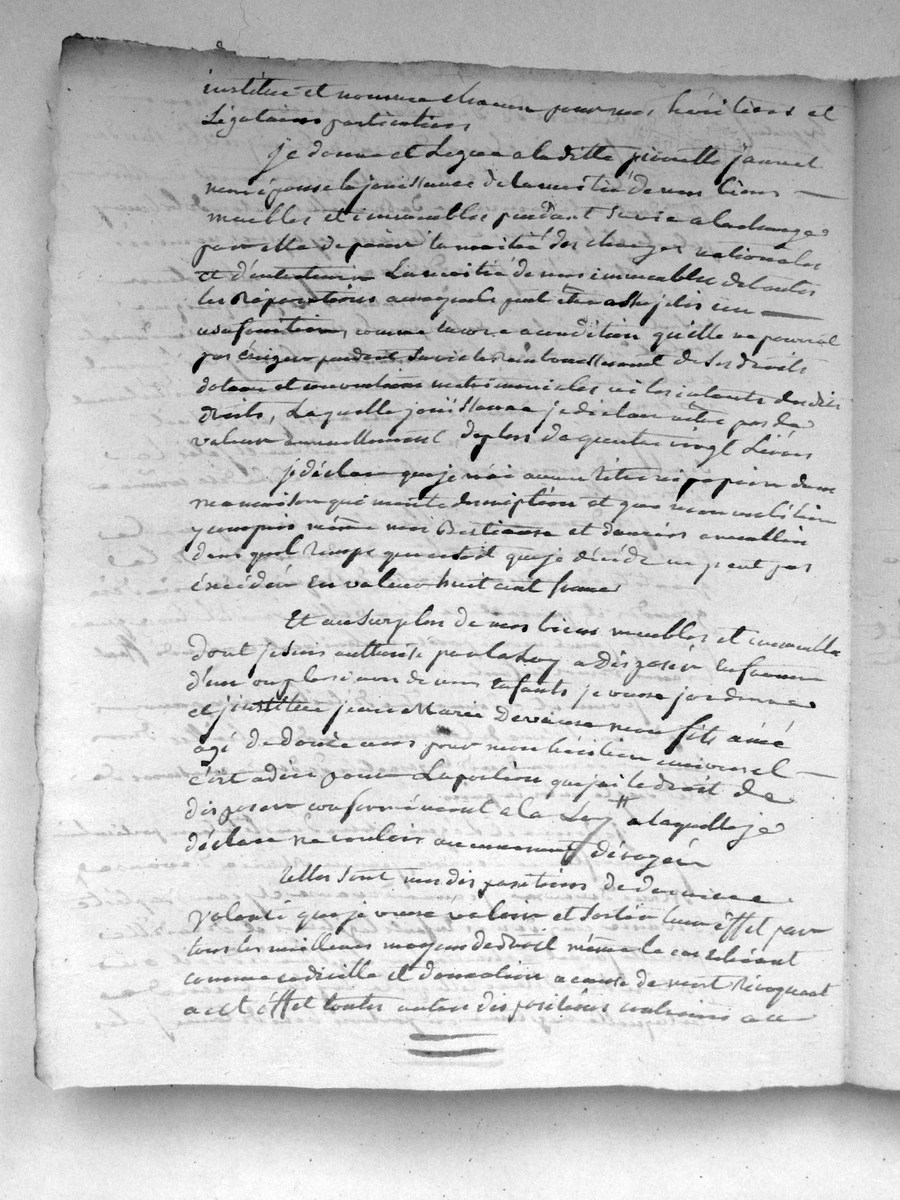 institue et nomme chacun pour mes héritiers et
Légataires particuliers
je donne et Legue a laditte pierrette jannet
mon épouse la jouissance de la moitié de mes biens
meubles et immeubles pendant sa vie a la charge
par elle de païer la moitié des charges nationales
et d'entretenir La moitié de mes immeubles de toutes
les Réparations auxquels peut être assujetis un
usufruitier, comme encore a condition qu'elle ne pourrat
pas éxiger pendant sa vie le remboursement de ses droits
dotaux et conventions matrimoniales ni les intérêts desdits
droits, Laquelle jouissance je déclare n'être pas de
valeur annuellement de plus de quatre vingt Livres
je déclare que je n'ai aucun titre ni papier dans
ma maison qui mérite description et que mon mobilier
y compris même mes Bestiaux et denrées a recueillir
dans quel temps que ce soit que je décéde ne peut pas
éxcéder En valeur huit cent francs
Et au surplus de mes biens meubles et immeubles
dont je suis authorisé par la Loy a disposer En faveur
d'un ou plusieurs de mes Enfants je veux j'ordonne
et j'institue jean Marie Devienne mon fils ainé
agé de douze ans pour mon héritier universel
c'est a dire pour La portion que j'ai le droit de
disposer conformément a la Loy a laquelle je
déclare ne vouloir aucunement dérogér
telles sont mes dispositions de derniere
volonté que je veux valoir et sortir leur éffet par
tous les meilleurs moyens de droit même le cas échéant
comme codicille et donation a cause de mort Révoquant
a cet éffet toutes autres dispositions contraires a ce